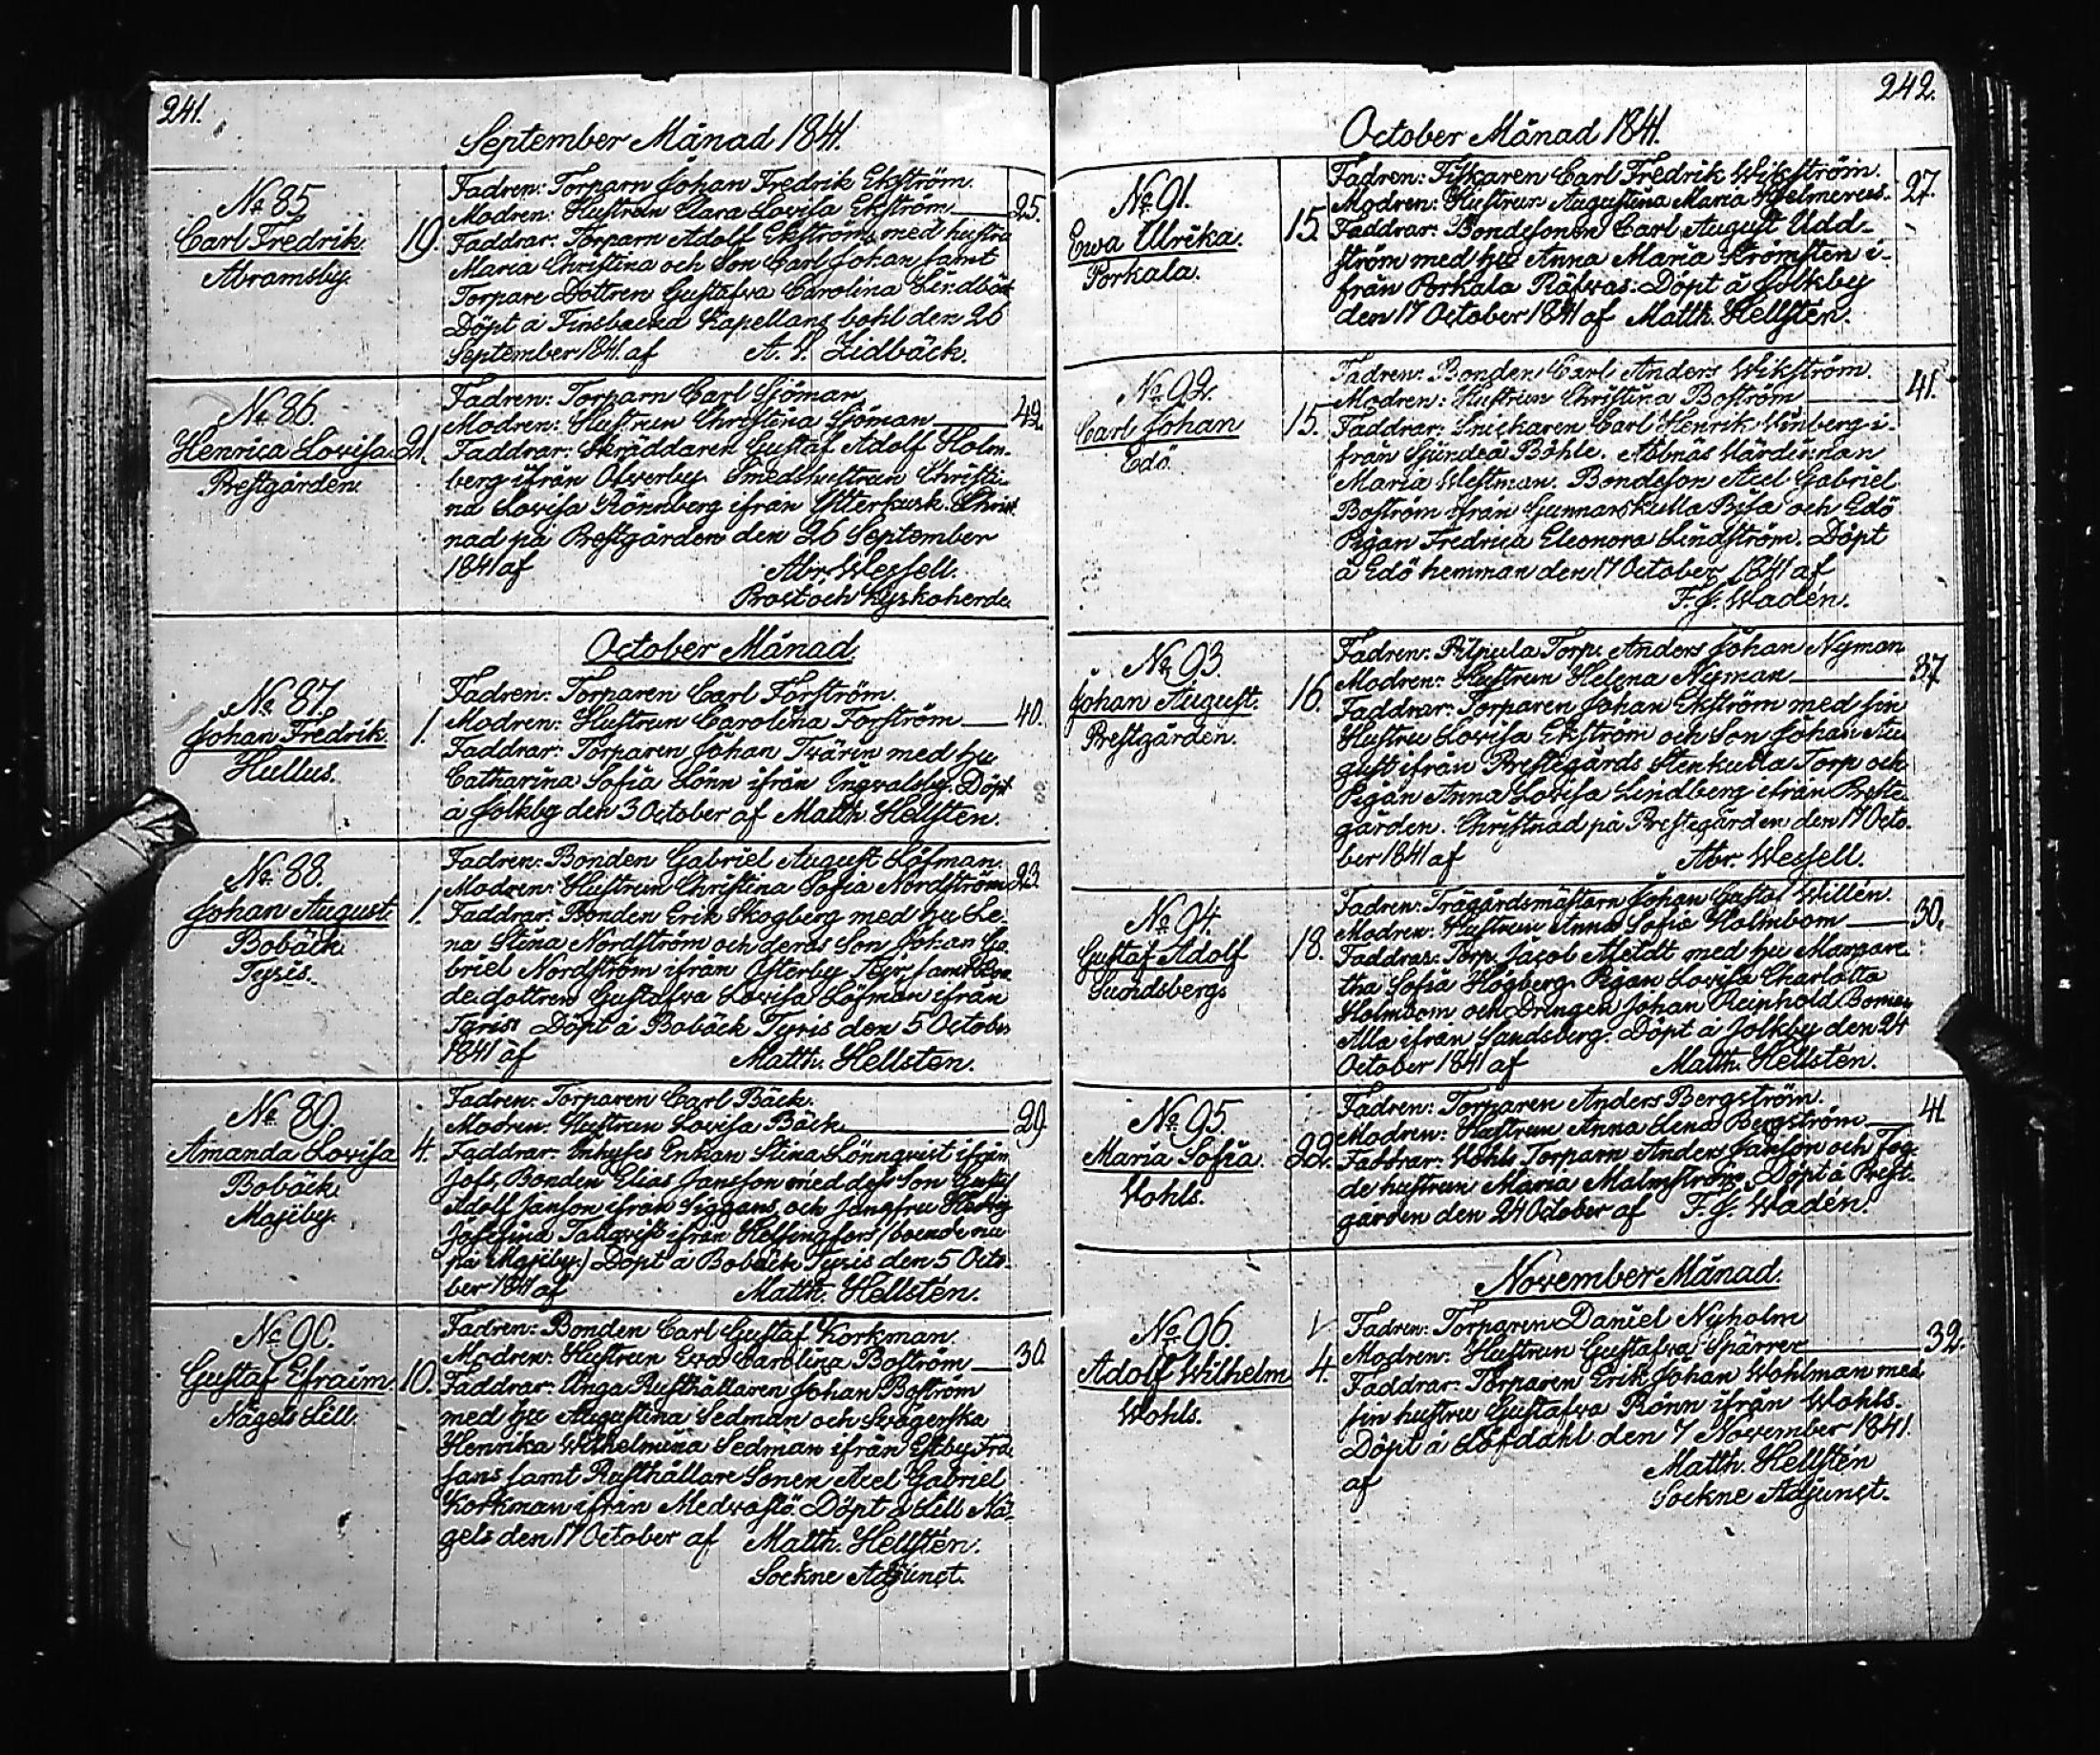 241.
September Månad 1841.
No 85
Carl Fredrik
Abramsby.
19.
Fadren: Torparn Johan Fredrik Ekström.
Modren: Hustrun Clara Lovisa Ekström 25.
Faddrar: Torparn Adolf Ekström med hustru
Maria Christina och Son Carl Johan samt
Torpare Dottren Gustafva Carolina Lindbäck
Döpt å Finsbacka Kapellans bohl den 26
September 1841. af A. Lidbäck.
No 86.
Henrica Lovisa
Prestgården.
21.
Fadren: Torparn Carl Sjöman
Modren: Hustrun Christina Sjöman 42.
Faddrar: Skräddaren Gustaf Adolf Holm-
berg ifrån Ofverby. Smedshustrun Christi-
na Lovisa Rönnberg ifrån Ytterkusk. Christ
nad på Prestgården den 26 September
1841 af Abr. Wessell.
Prost och Kyrkoherde.
October Månad
No 87.
Johan Fredrik
Hullus.
1.
Fadren: Torparen Carl Forström.
Modren: Hustrun Carolina Forström 40.
Faddrar: Torparen Johan Tvärin med hu
Catharina Sofia Lönn ifrån Ingvalsby. Döpt
å Jolkby den 3 October af Matth. Hellsten.
No 88.
Johan August
Bobäck
Tysis.
1.
Fadren: Bonden Gabriel August Löfman.
Modren: Hustrun Christina Sofia Nordström 23.
Faddrar: Bonden Erik Skogberg med hu Le-
na Stina Nordström och deras Son Johan Ga
briel Nordström ifrån Österby samt Bon
de dottren Gustafva Lovisa Löfman ifrån
Tysis. Döpt å Bobäck Tysis den 5 October
1841 af Matth. Hellsten.
No 89.
Amanda Lovisa
Bobäck
Majiby.
4.
Fadren: Torparen Carl Bäck.
Modren: Hustrun Lovisa Bäck. 29.
Faddrar: Inhyses Enkan Stina Lönnqvist ifrån
Jofs, Bonden Elias Jansson med dess Son Gustaf
Adolf Janson ifrån Siggans, och Jungfru Hedvig
Josefina Tallqvist ifrån Helsingfors (boende nu
på Majiby.) Döpt å Bobäck Tysis den 5 Octo-
ber 1841 af Matth. Hellstén.
No 90.
Gustaf Efraim.
Nägels Lill.
10.
Fadren: Bonden Carl Gustaf Korkman.
Modren: Hustrun Eva Carolina Boström 30.
Faddrar: Unga Rusthållaren Johan Boström
med hu Augustina Sedman och Svägerska
Henrika Wilhelmina Sedman ifrån Estby
samt Rusthållare Sonen Axel Gabriel
Korkman ifrån Medvasta. Döpt å Lill Nä-
gels den 17 October af Matth. Hellstén.
Sockne Adjunct.
242.
October Månad 1841.
No 91.
Ewa Ulrika.
Porkala.
15.
Fadren: Fiskaren Carl Fredrik Wikström.
Modren: Hustrun Augustina Maria Hjelmerus. 27.
Faddrar: Bondesonen Carl August Udd-
ström med hu Anna Maria Strömsten i-
från Porkala Räfvas. Döpt å Jolkby
den 17 October 1841 af Matth. Hellstén.
No 92.
Carl Johan
Edö
15.
Fadren: Bonden Carl Anders Wikström.
Modren: Hustrun Christina Boström 41.
Faddrar: Snickaren Carl Henrik Winberg i-
från Sjundeå Böhle. Näbnäs Värdinnan
Maria Westman. Bondeson Axel Gabriel
Boström ifrån Gunnarskulla Bysa och Edö
Pigan Fredrica Eleonora Lindström. Döpt
å Edö hemman den 17 October 1841 af
F. J. Wadén.
No 93.
Johan August.
Prestgården.
16.
Fadren: Pilpula Torp. Anders Johan Nyman
Modren: Hustrun Helena Nyman 37
Faddrar: Torparen Johan Ekström med sin
Hustru Lovisa Ekström och Son Johan Au
gust ifrån Prestegårds Stenkulla Torp och
Pigan Anna Lovisa Lindberg ifrån Preste
gården. Christnad på Prestegården den 17 Octo-
ber 1841 af Abr. Wessell.
No 94.
Gustaf Adolf
Sundsbergs
18.
Fadren: Trägårdsmästarn Johan Gustaf Willén.
Modren: Hustrun Anna Sofia Holmbom 30.
Faddrar: Torp. Jacob Afeldt med hu Margare
tha Sofia Högberg. Pigan Lovisa Charlotta
Holmbom och Drengen Johan Reinhold
Alla ifrån Sundsberg. Döpt å Jolkby den 24
October 1841 af Matth. Hellstén.
No 95.
Maria Sofia.
Wohls.
22.
Fadren: Torparen Anders Bergström.
Modren: Hustrun Anna Lena Bergström 41
Faddrar: Wohls Torparn Anders Janson och Fog-
de hustrun Maria Malmström. Döpt å Prest-
gården den 24 October af F. J. Wadén.
November Månad.
No 96.
Adolf Wilhelm
Wohls.
4.
Fadren: Torparen Daniel Nyholm
Modren: Hustrun Gustafva Spärrer 32.
Faddrar: Torparen Erik Johan Wohlman med
sin hustru Gustafva Rönn ifrån Wohls.
Döpt å Löfdahl den 7 November 1841.
af Matth. Hellstén
Sockne Adjunct.